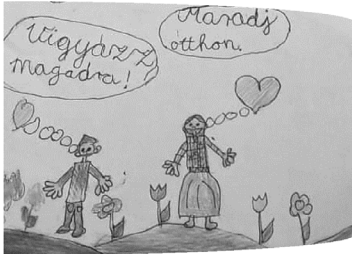 Vigyázz
magadra!
Maradj
itthon.